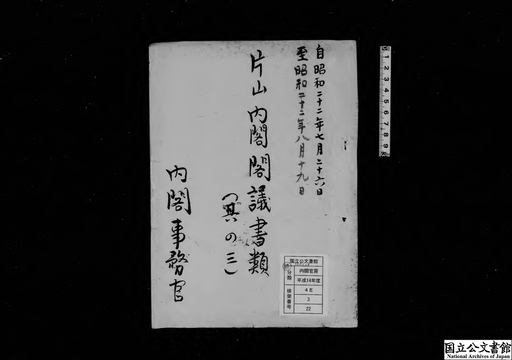 自昭和二十二年七月二十六日
至昭和二十二年八月十九日
片山内閣閣議書類
(其の三)
内閣事務官
国立公文書館
分類
内閣官房
平成14年度
排架番号
4E
3
22
1 2 3 4 5 6 7 8 9
国立公文書館
National Archives of Japan